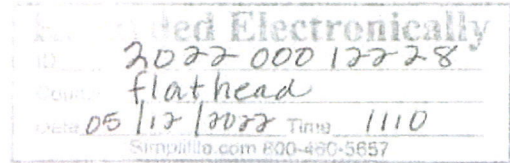 Recorded Electronically
ID 202200012228
County flathead
Date 05/12/2022 Time 1110
Simplifile.com 800-460-5657